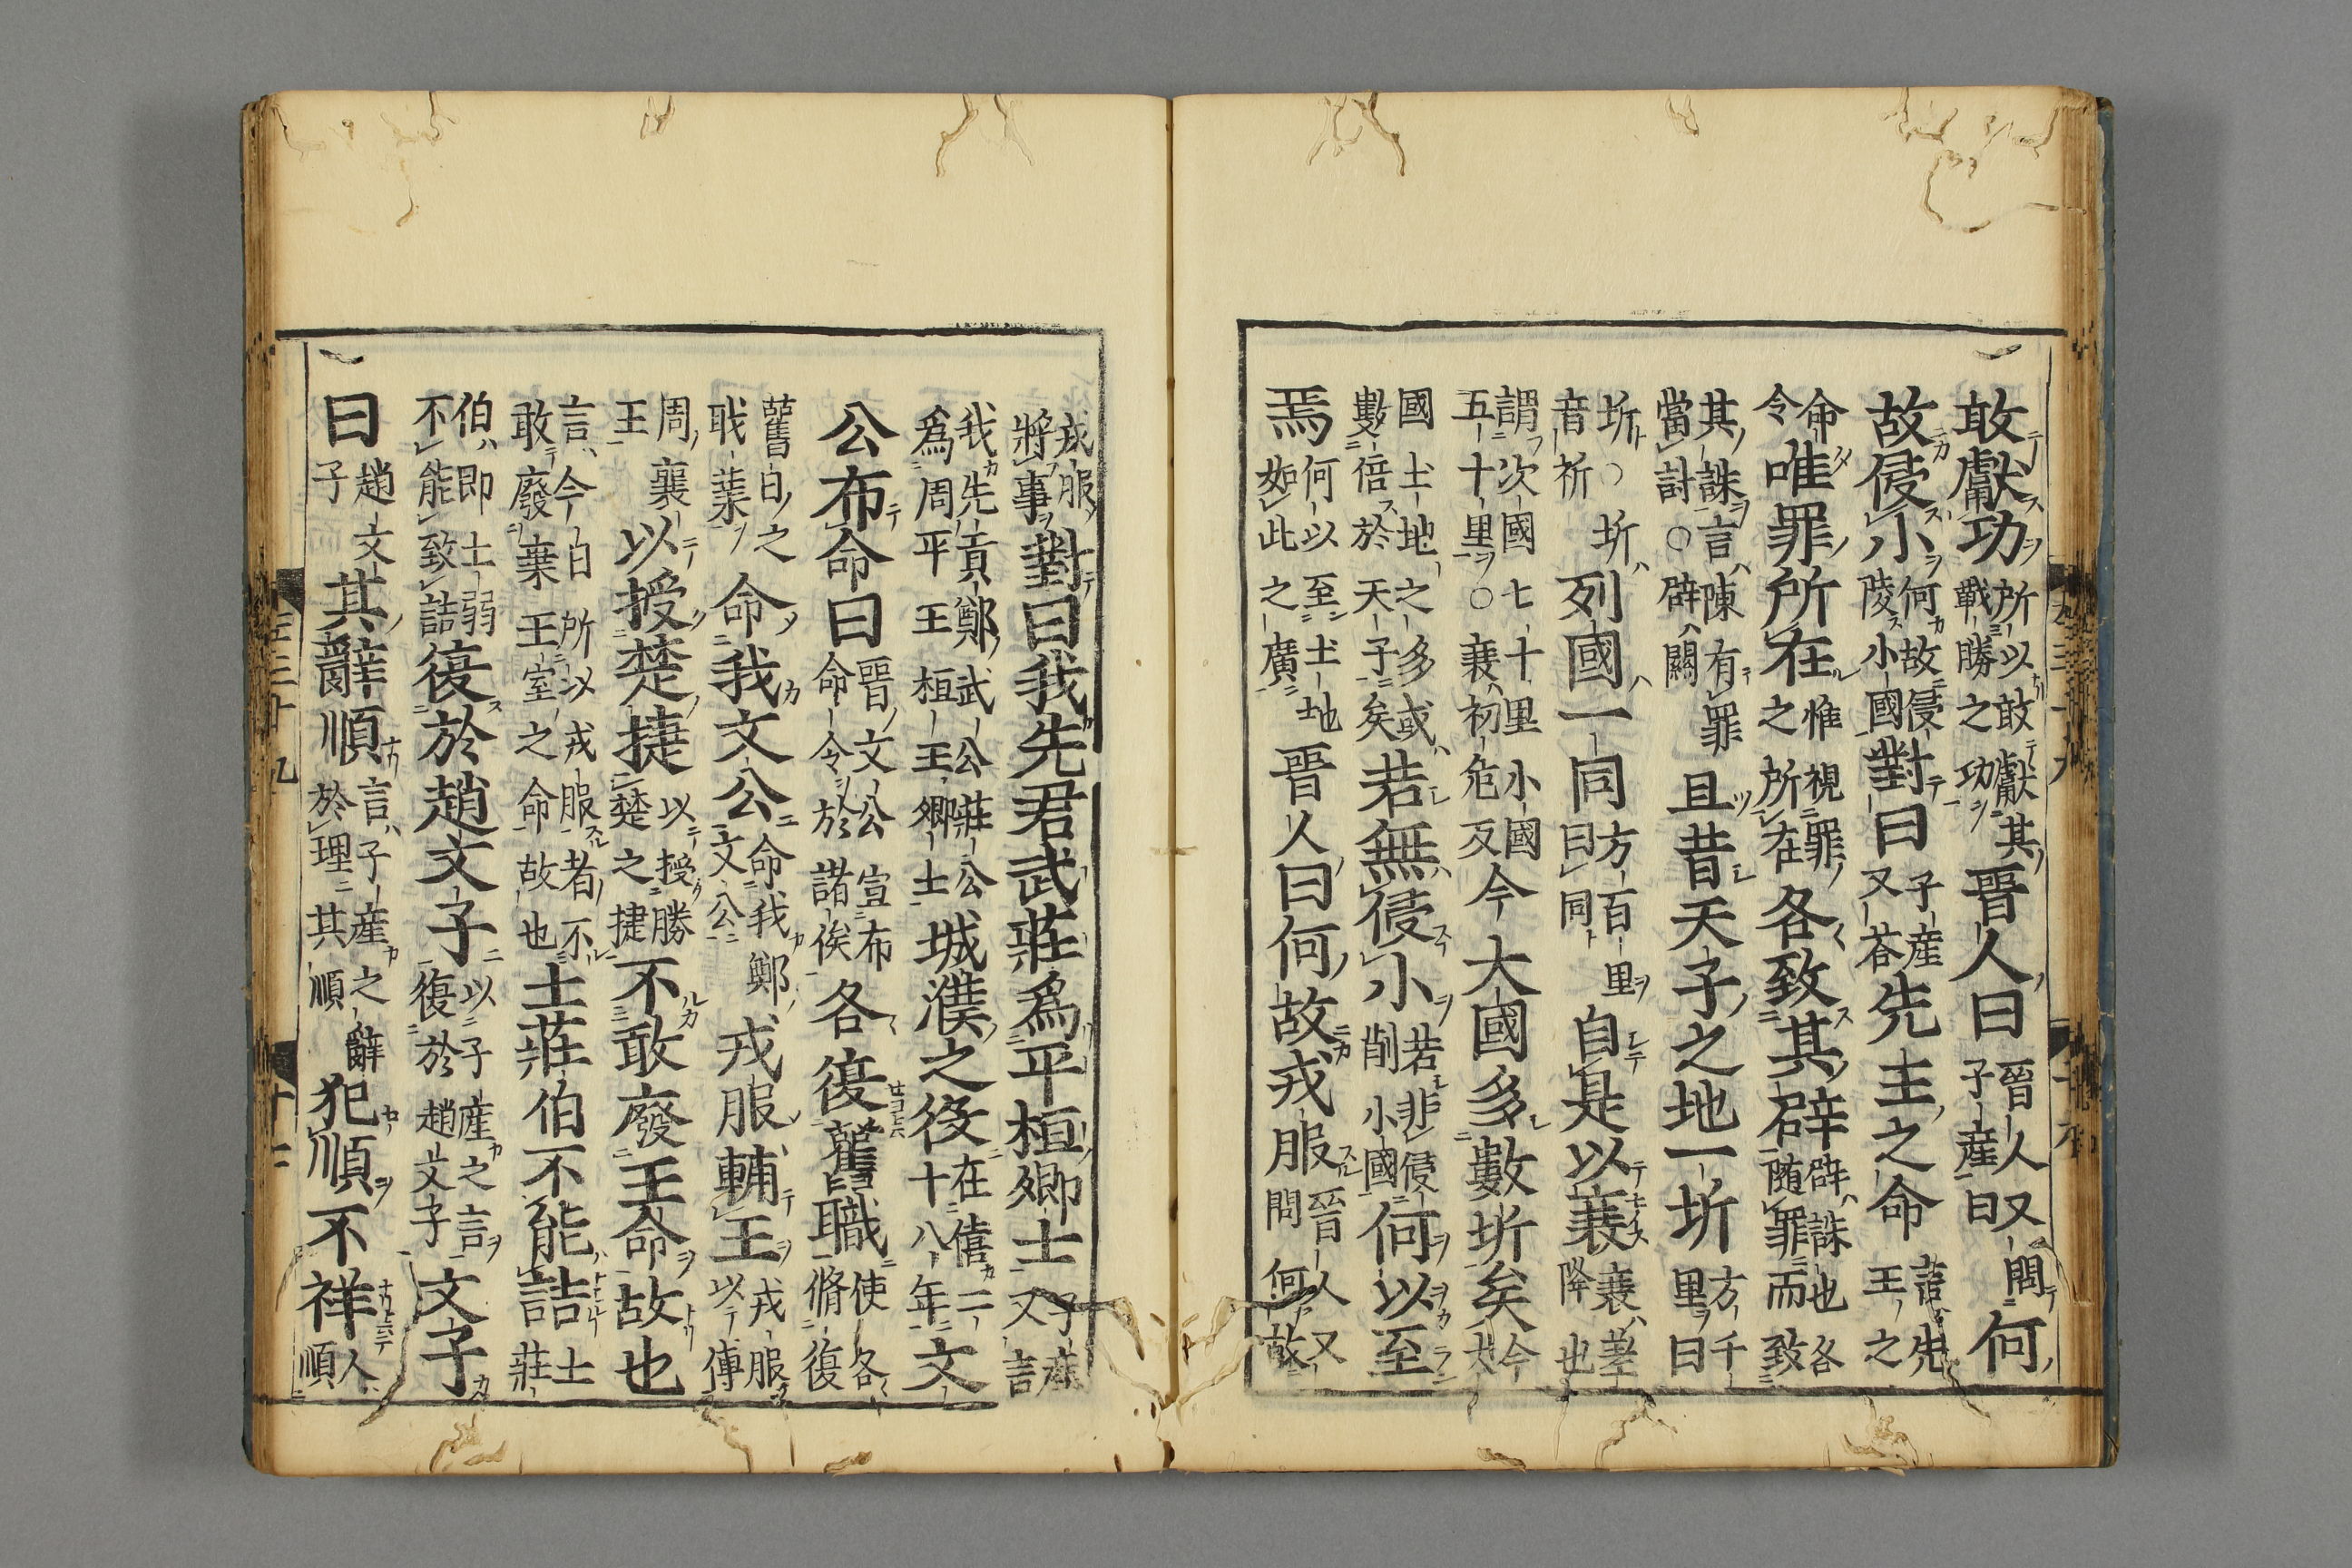 敢獻功所以敢獻其戰勝之功晉人曰晉人又問子產曰何
故侵小何故侵陵小國對曰子產又荅先王之命言先王之
命令唯罪所在惟視罪之所在各致其辟辟誅也各随罪而致
其誅言陳有罪當討○辟闢且昔天子之地一圻方千里曰
圻○圻音祈列國一同方百里曰同自是以衰衰差降也
謂次國七十里小國五十里○衰初危反今大國多數圻矣今大
國土地之多或數倍於天子矣若無侵小若非侵削小國何以至
焉何以至土地如此之廣晉人曰何故戎服晉人又問何故
戎服將事對曰我先君武莊爲平桓卿士子產又言
我先君鄭武公莊公爲周平王桓王卿士城濮之役在僖二十八年文
公布命曰晉文公宣布命令於諸侯各復舊職使各脩復
舊日之職業命我文公命我鄭文公戎服輔王戎服以傅
周襄王以授楚捷以授勝楚之捷不敢廢王命故也
言今日所以戎服者不敢廢棄王室之命故也士莊伯不能詰士莊
伯即士弱不能致詰復於趙文子以子產之言復於趙文子文子
曰趙文子其辭順言子產之辭於理其順犯順不祥人順